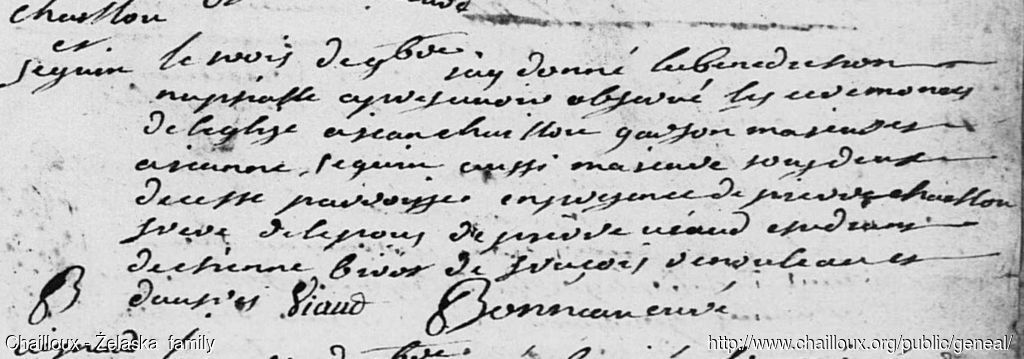 chaillou
et
seguin
le trois de 9bre jay donné la benediction
nuptialle apres avoir observé les ceremonies
de leglise a jean chaillou garson majeur et
a jeanne seguin aussi majeure tous deux
de cette parroisse en presence de pierre chaillou
frere de lepous de pierre viaud
de etienne de françois et
dautres Viaud Bonneau curé
B
Chailloux - Żelaska family
http://www.chailloux.org/public/geneal/